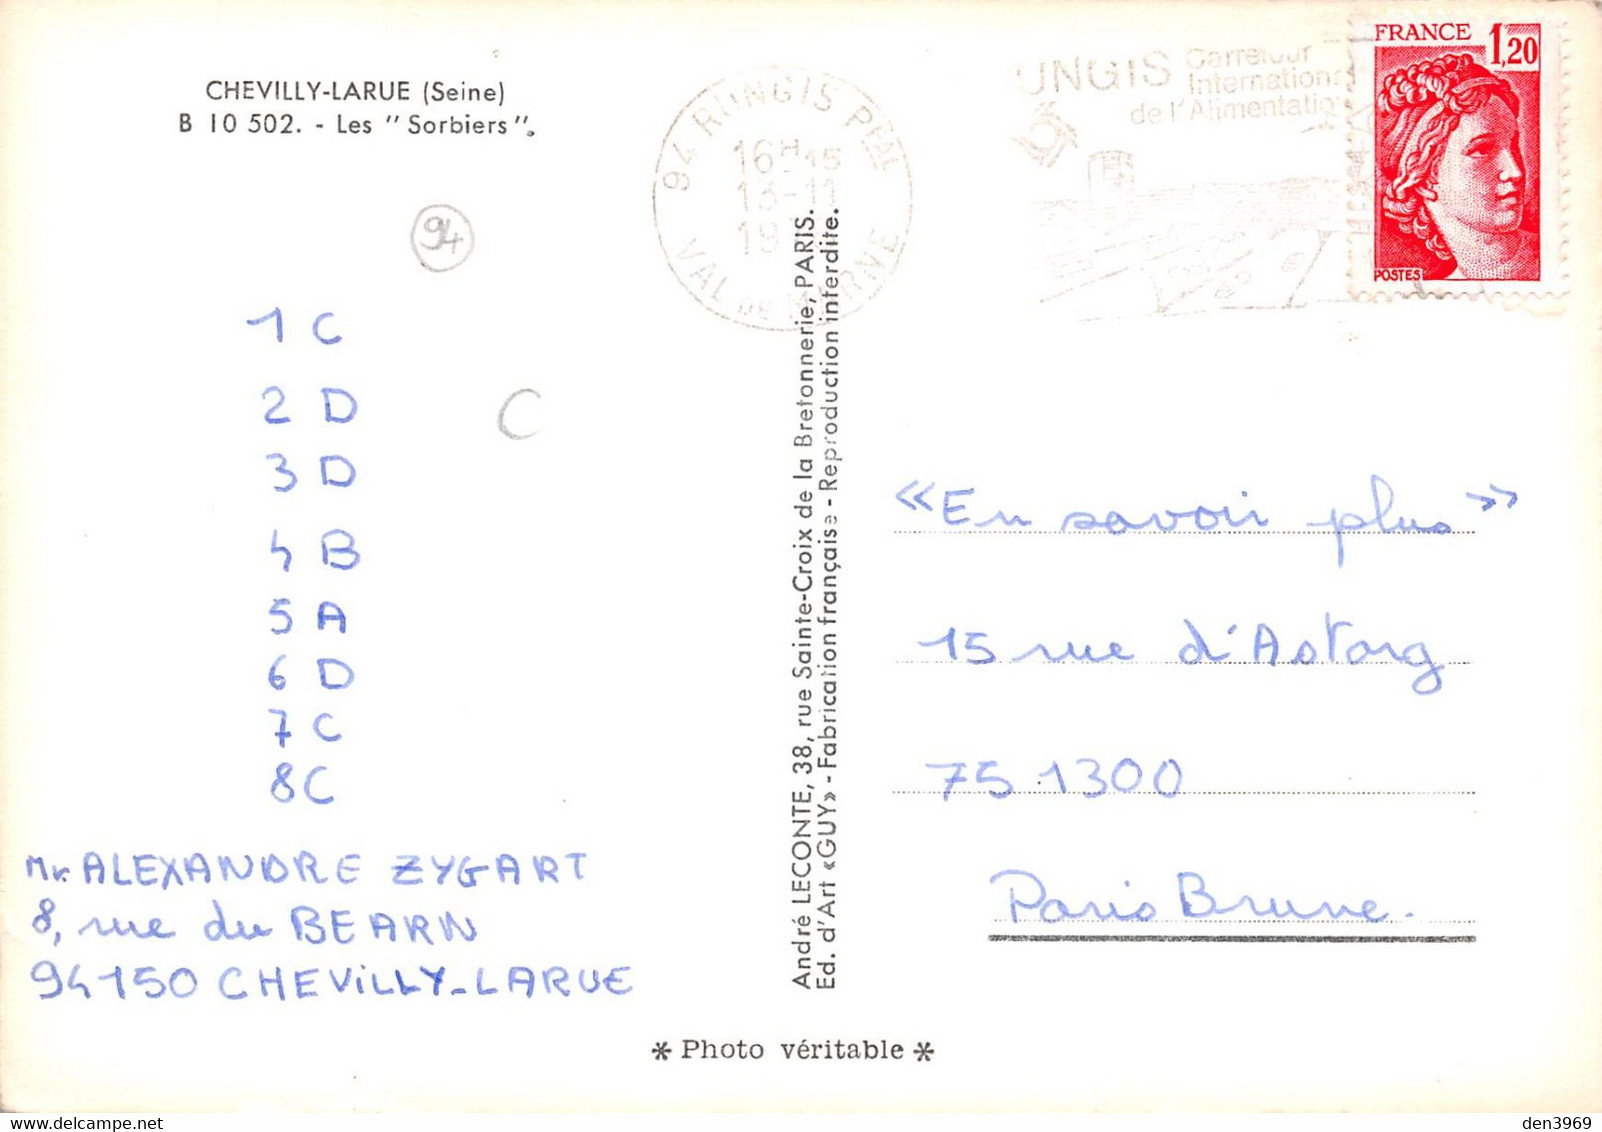 CHEVILLY-LARUE (Seine)
B 10 502. - Les "Sorbiers".
94
1 C
2 D
3 D
4 B
5 A
6 D
7 C
8 C
C
Mr. ALEXANDRE ZYGART
8, rue du BEARN
94150 CHEVILLY-LARUE
94 RUNGIS PPAL
16H15
13-11
19
VAL DE MARNE
UNGIS Carrefour
International
de l'Alimentatio
FRANCE 1,20
POSTES
André LECONTE, 38, rue Sainte-Croix de la Bretonnerie, PARIS.
Ed. d'Art «GUY» - Fabrication française - Reproduction interdite.
«En savoir plus»
15 rue d'Astorg
75 1300
Paris Brune.
* Photo véritable *
den3969